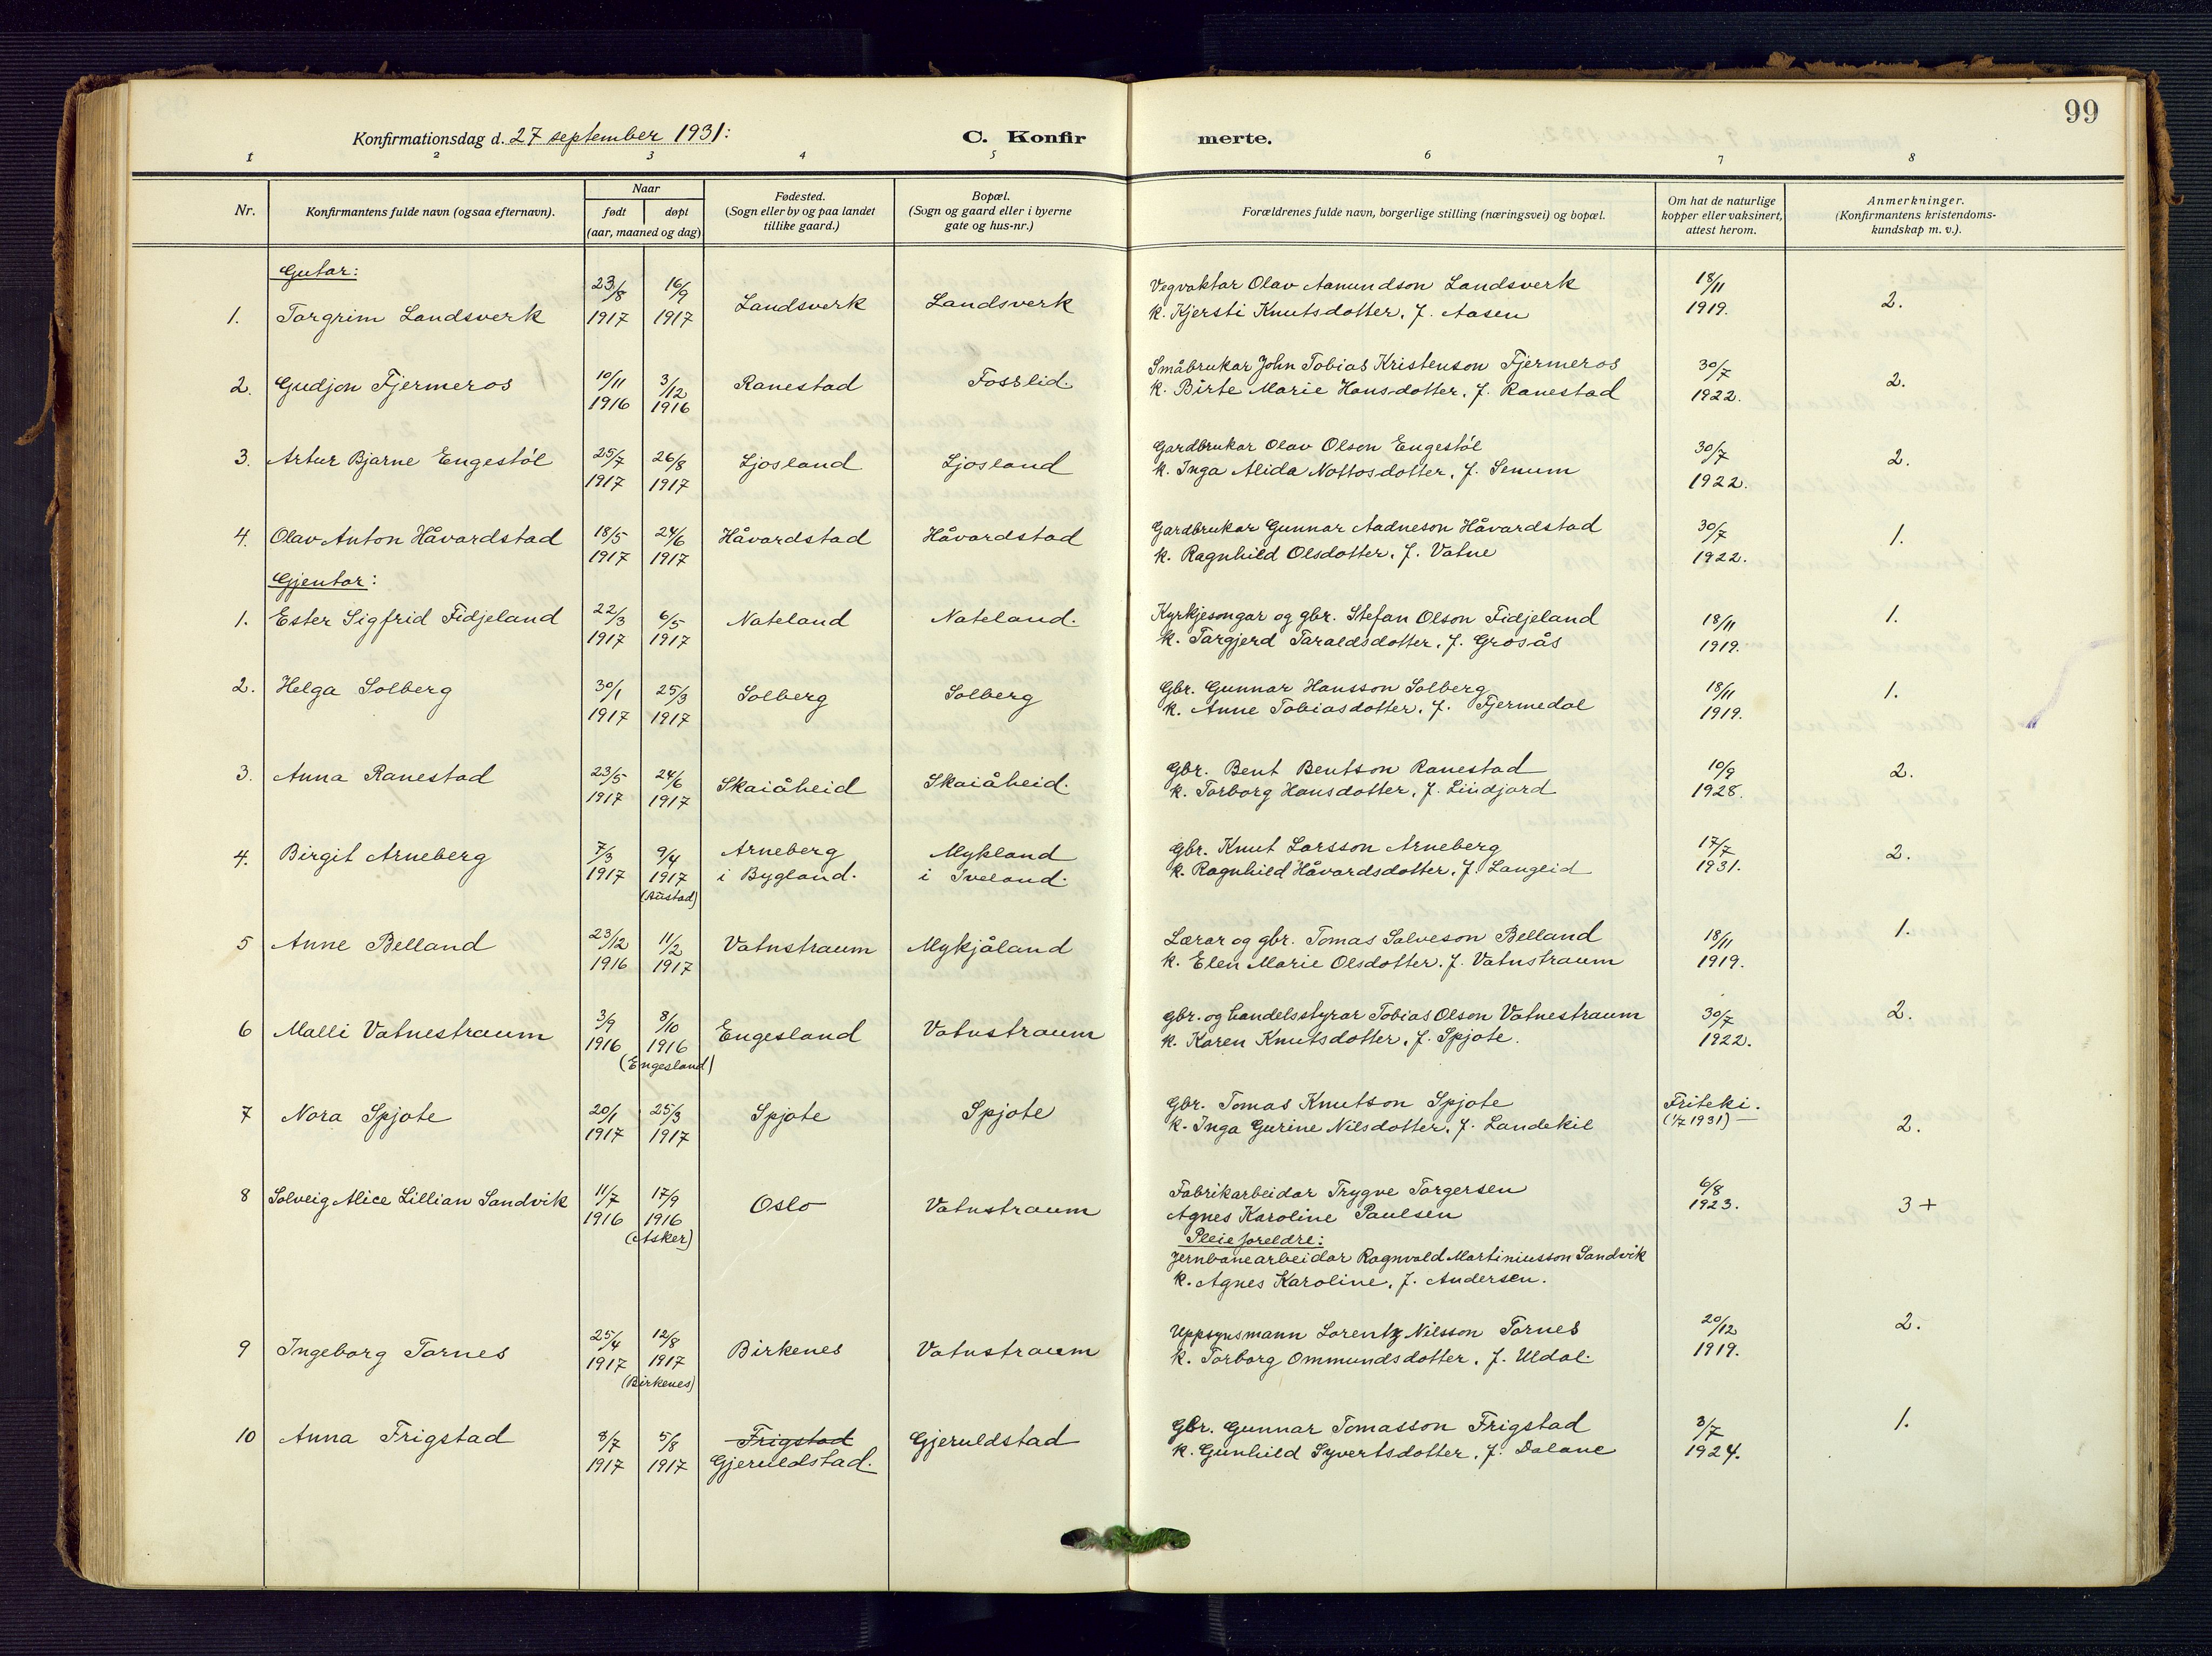 99
Konfirmationsdag d. 27 september 1931:
C. Konfirmerte.
1 2 3 4 5 6 7 8
Nr.
Konfirmantens fulde navn (ogsaa efternavn).
Naar
født døpt
(aar, maaned og dag)
Fødested.
(Sogn eller by og paa landet
tillike gaard.)
Bopæl.
(Sogn og gaard eller i byerne
gate og hus-nr.)
Forældrenes fulde navn, borgerlige stilling (næringsvei) og bopæl.
Om hat de naturlige
kopper eller vaksinert,
attest herom.
Anmerkninger.
(Konfirmantens kristendoms-
kundskap m. v.).
Gutar:
1. Targrim Landsverk 23/8 1917 16/9 1917 Landsverk Landsverk
Vegvaktar Olav Aamundson Landsverk 18/11
k. Kjersti Knutsdotter, f. Aasen 1919. 2.
2. Gudjon Fjermeros 10/11 1916 3/12 1916 Ranestad Fosslid.
Småbrukar John Tobias Kristenson Fjermeros 30/7
k. Birte Marie Hansdotter, f. Ranestad 1922. 2.
3. Artur Bjarne Engestøl 25/7 1917 26/8 1917 Ljosland Ljosland
Gardbrukar Olav Olson Engestøl 30/7
k. Inga Alida Nottosdotter, f. Senum 1922. 2.
4. Olav Anton Håvardstad 18/5 1917 24/6 1917 Håvardstad Håvardstad
Gardbrukar Gunnar Aadneson Håvardstad 30/7
k. Ragnhild Olsdotter, f. Vatne 1922. 1.
Gjentor:
1. Ester Sigfrid Fidjeland 22/3 1917 6/5 1917 Nateland Nateland.
Kyrkjesongar og gbr. Stefan Olson Fidjeland 18/11
k. Targjerd Taraldsdotter, f. Grosås 1919. 1.
2. Helga Solberg 30/1 1917 25/3 1917 Solberg Solberg
Gbr. Gunnar Hansson Solberg 18/11
k. Anne Tobiasdotter, f. Fjermedal 1919. 1.
3. Anna Ranestad 23/5 1917 24/6 1917 Skaiåheid Skaiåheid.
Gbr. Bent Bentson Ranestad 10/9
k. Torborg Hansdotter, f. Lindjord 1928. 2.
4. Birgit Arneberg 7/3 1917 9/4 1917 (Austad) Arneberg i Bygland. Mykland i Iveland.
Gbr. Knut Larsson Arneberg 17/7
k. Ragnhild Håvardsdotter, f. Langeid 1931. 2.
5 Anne Belland 23/12 1916 11/2 1917 Vatnstraum Mykjåland
Lærar og gbr. Tomas Salveson Belland 18/11
k. Elen Marie Olsdotter, f. Vatnstraum 1919. 1.
6 Malli Vatnestraum 3/9 1916 8/10 1916 (Engesland) Engesland Vatnstraum
gbr. og handelsstyrar Tobias Olson Vatnestraum 30/7
k. Karen Knutsdotter, f. Spjote. 1922. 2.
7 Nora Spjote 20/1 1917 25/3 1917 Spjote Spjote
Gbr. Tomas Knutson Spjote Friteki.
k. Inga Gurine Nilsdotter, f. Landekil (1/7 1931) 2.
8 Solveig Alice Lillian Sandvik 11/7 1916 17/9 1916 (Asker) Oslo Vatnstraum
Fabrikarbeidar Trygve Torgersen 6/8
Agnes Karoline Paulsen 1923. 3+
Pleieforeldre:
Jernbanearbeidar Ragnvald Martiniusson Sandvik
k. Agnes Karoline, f. Andersen.
9 Ingeborg Tornes 25/4 1917 12/8 1917 (Birkenes) Birkenes Vatnstraum
Uppsynsmann Lorentz Nilsson Tornes 20/12
k. Torborg Ommundsdotter, f. Uldal. 1919. 2.
10 Anna Frigstad 8/7 1917 5/8 1917 Frigstad Gjeruldstad. Gjeruldstad
Gbr. Gunnar Tomasson Frigstad 3/7
k. Gunhild Syvertsdotter, f. Dalane 1924. 1.